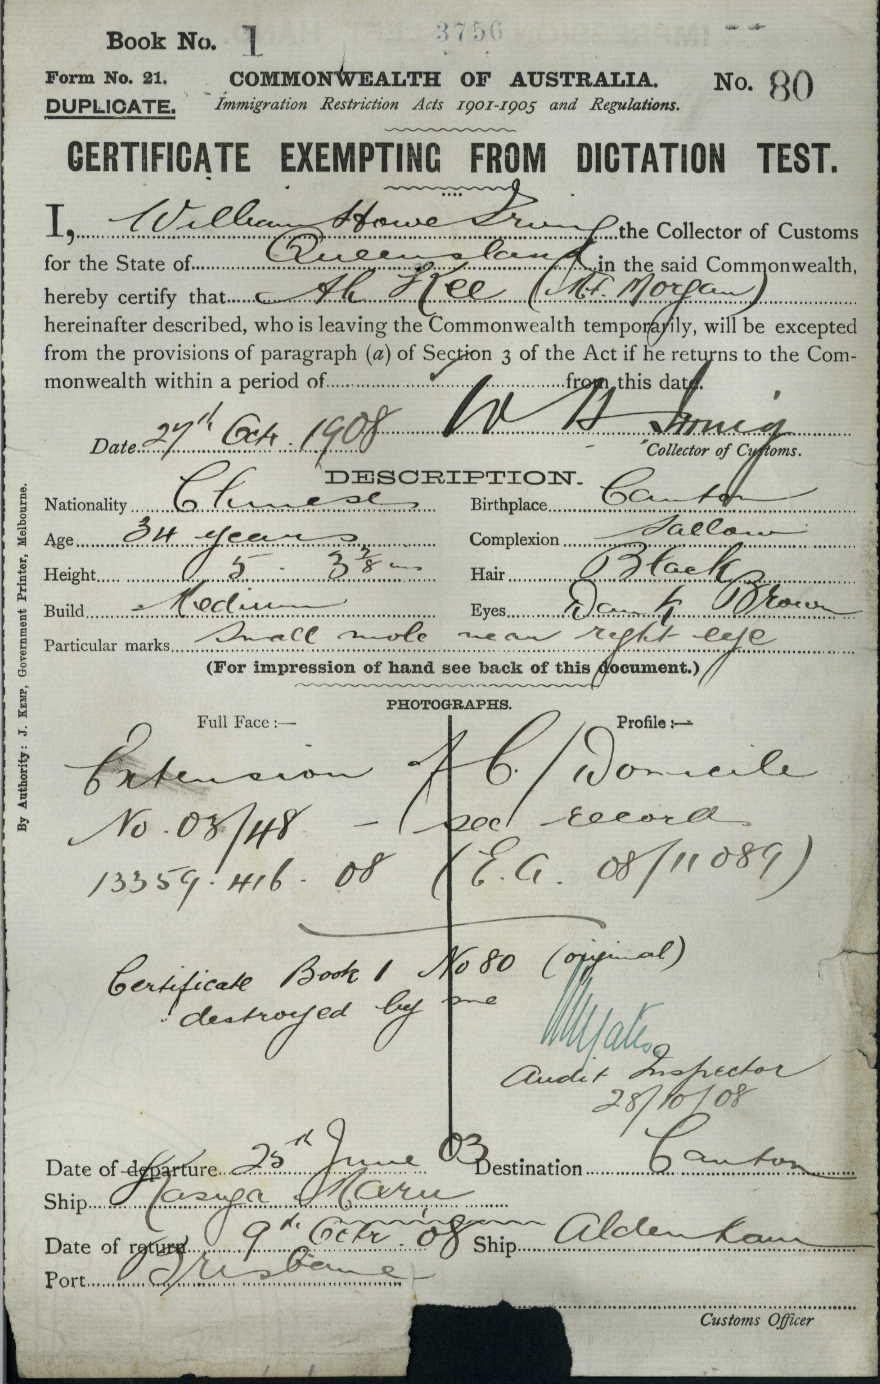 Book No. 1 3756
Form No. 21. COMMONWEALTH OF AUSTRALIA. No. 80
DUPLICATE. Immigration Restriction Acts 1901-1905 and Regulations.
CERTIFICATE EXEMPTING FROM DICTATION TEST.
I, William Howe Irving the Collector of Customs
for the State of Queensland in the said Commonwealth,
hereby certify that Ah Kee (Mt. Morgan)
hereinafter described, who is leaving the Commonwealth temporarily, will be excepted
from the provisions of paragraph (a) of Section 3 of the Act if he returns to the Com-
monwealth within a period of from this date.
Date 27th Octr. 1908 W H Irving
Collector of Customs.
DESCRIPTION.
Nationality Chinese Birthplace Canton
Age 34 years Complexion Sallow
Height 5 - 3 7/8 ins Hair Black
Build Medium Eyes Dark Brown
Particular marks Small mole near right eye
(For impression of hand see back of this document.)
PHOTOGRAPHS.
Full Face :— Profile :—
Extension of C/Domicile
No. 03/48 - see record
13359. 416. 08 (E.A. 08/11089)
Certificate Book 1 No 80 (original)
destroyed by me
Audit Inspector
28/10/08
Date of departure 25th June 03 Destination Canton
Ship Kasuga Maru
Date of return 9th Octr. 08 Ship Aldenham
Port Brisbane
Customs Officer
By Authority: J. KEMP, Government Printer, Melbourne.